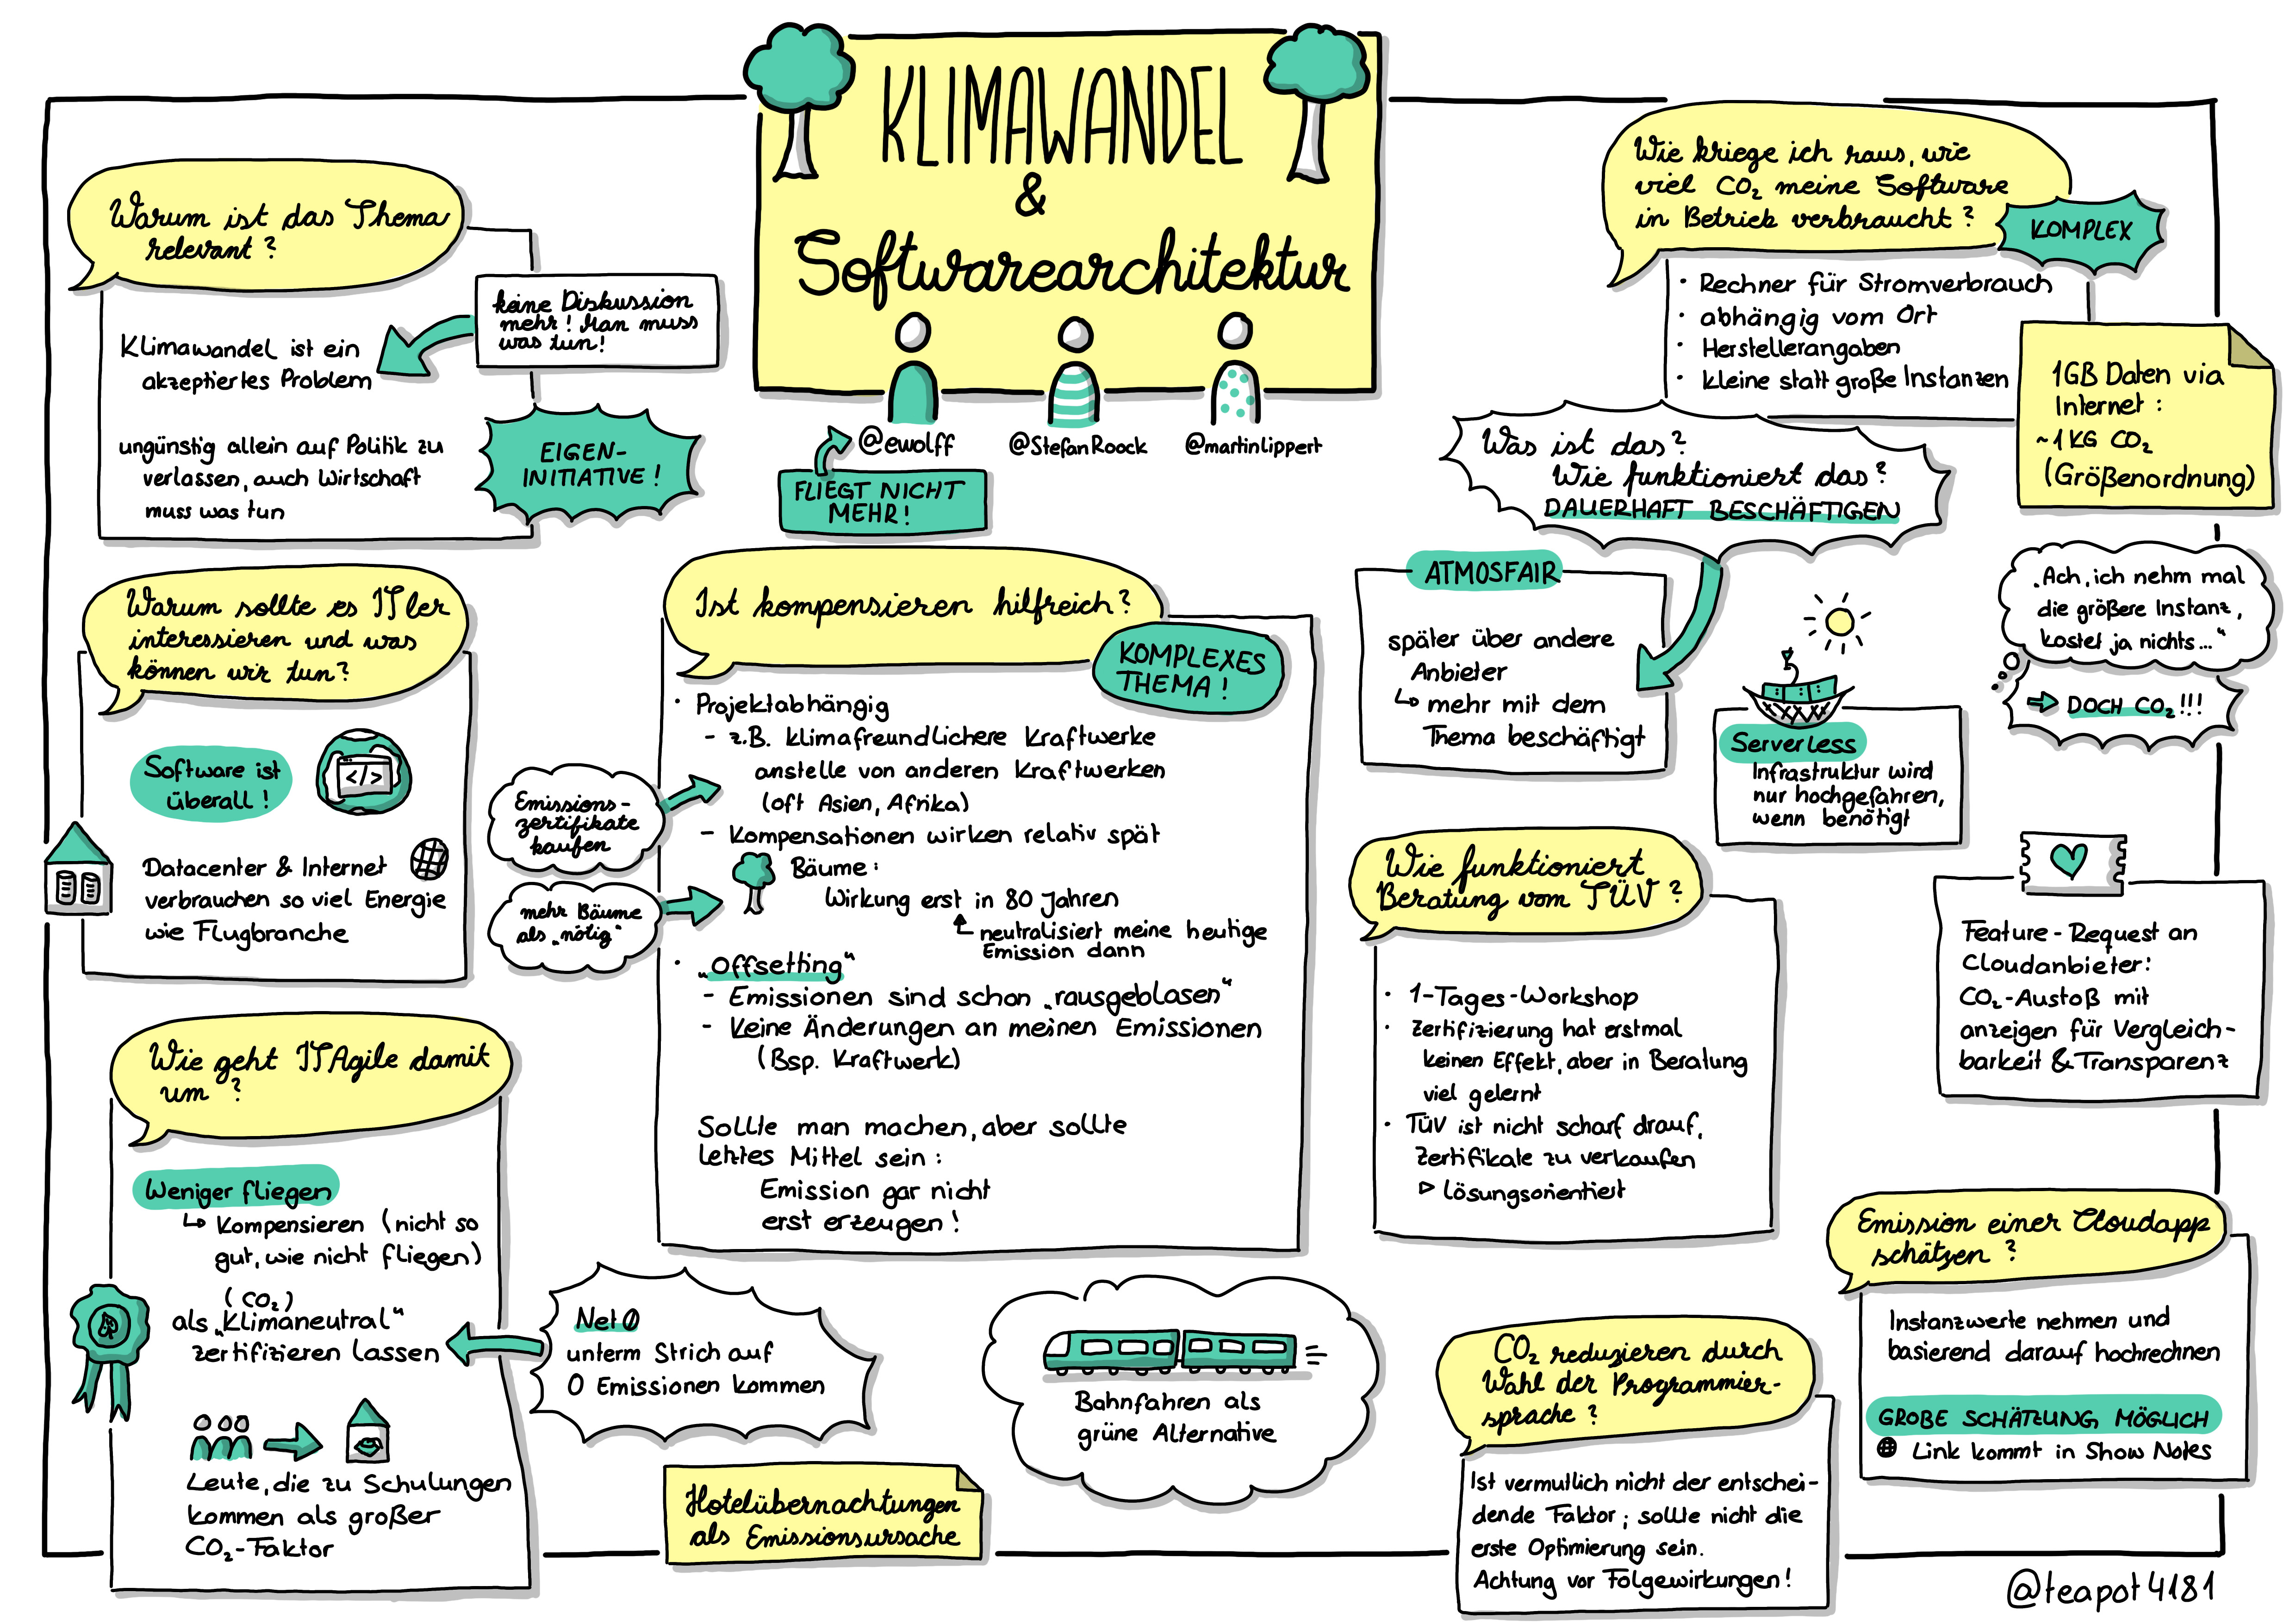 KLIMAWANDEL
&
Softwarearchitektur
@ewolff
@StefanRoock
@martinlippert
FLIEGT NICHT
MEHR!
Warum ist das Thema
relevant?
keine Diskussion
mehr! Man muss
was tun!
Klimawandel ist ein
akzeptiertes Problem
ungünstig allein auf Politik zu
verlassen, auch Wirtschaft
muss was tun
EIGEN-
INITIATIVE!
Warum sollte es ITler
interessieren und was
können wir tun?
Software ist
überall!
</>
Datacenter & Internet
verbrauchen so viel Energie
wie Flugbranche
Wie geht ITAgile damit
um?
Weniger fliegen
↳ Kompensieren (nicht so
gut, wie nicht fliegen)
(CO₂)
als „Klimaneutral“
zertifizieren lassen
Net 0
unterm Strich auf
0 Emissionen kommen
Leute, die zu Schulungen
kommen als großer
CO₂-Faktor
Ist kompensieren hilfreich?
KOMPLEXES
THEMA!
• Projektabhängig
- z.B. klimafreundlichere Kraftwerke
anstelle von anderen Kraftwerken
(oft Asien, Afrika)
- Kompensationen wirken relativ spät
Bäume:
Wirkung erst in 80 Jahren
neutralisiert meine heutige
Emission dann
• „Offsetting“
- Emissionen sind schon „rausgeblasen“
- Keine Änderungen an meinen Emissionen
(Bsp. Kraftwerk)
Sollte man machen, aber sollte
letztes Mittel sein:
Emission gar nicht
erst erzeugen!
Emissions-
zertifikate
kaufen
mehr Bäume
als „nötig“
Hotelübernachtungen
als Emissionsursache
Bahnfahren als
grüne Alternative
Wie kriege ich raus, wie
viel CO₂ meine Software
in Betrieb verbraucht?
KOMPLEX
• Rechner für Stromverbrauch
• abhängig vom Ort
• Herstellerangaben
• kleine statt große Instanzen
1GB Daten via
Internet:
~1KG CO₂
(Größenordnung)
Was ist das?
Wie funktioniert das?
DAUERHAFT BESCHÄFTIGEN
ATMOSFAIR
später über andere
Anbieter
↳ mehr mit dem
Thema beschäftigt
Serverless
Infrastruktur wird
nur hochgefahren,
wenn benötigt
„Ach, ich nehm mal
die größere Instanz,
kostet ja nichts...“
→ DOCH CO₂!!!
Wie funktioniert
Beratung vom TÜV?
• 1-Tages-Workshop
• Zertifizierung hat erstmal
keinen Effekt, aber in Beratung
viel gelernt
• TÜV ist nicht scharf drauf,
Zertifikate zu verkaufen
▷ lösungsorientiert
Feature-Request an
Cloudanbieter:
CO₂-Austoß mit
anzeigen für Vergleich-
barkeit & Transparenz
Emission einer Cloudapp
schätzen?
Instanzwerte nehmen und
basierend darauf hochrechnen
GROBE SCHÄTZUNG MÖGLICH
Link kommt in Show Notes
CO₂ reduzieren durch
Wahl der Programmier-
sprache?
Ist vermutlich nicht der entschei-
dende Faktor; sollte nicht die
erste Optimierung sein.
Achtung vor Folgewirkungen!
@teapot4181